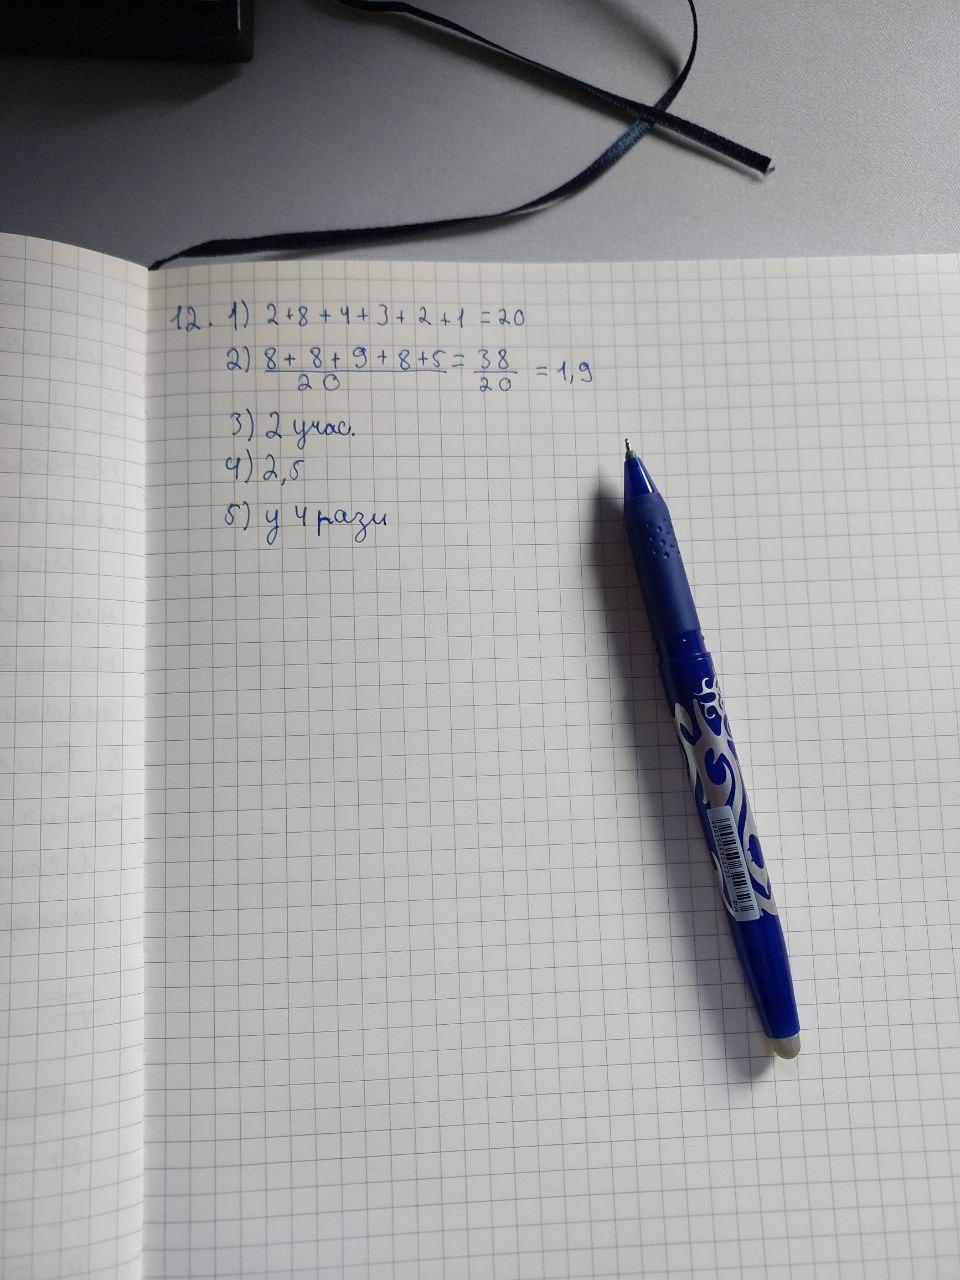 12. 1) 2+8+4+3+2+1 = 20
2) 8+8+9+8+5 = 38 = 1,9
20 20
3) 2 учас.
4) 2,5
5) у 4 рази